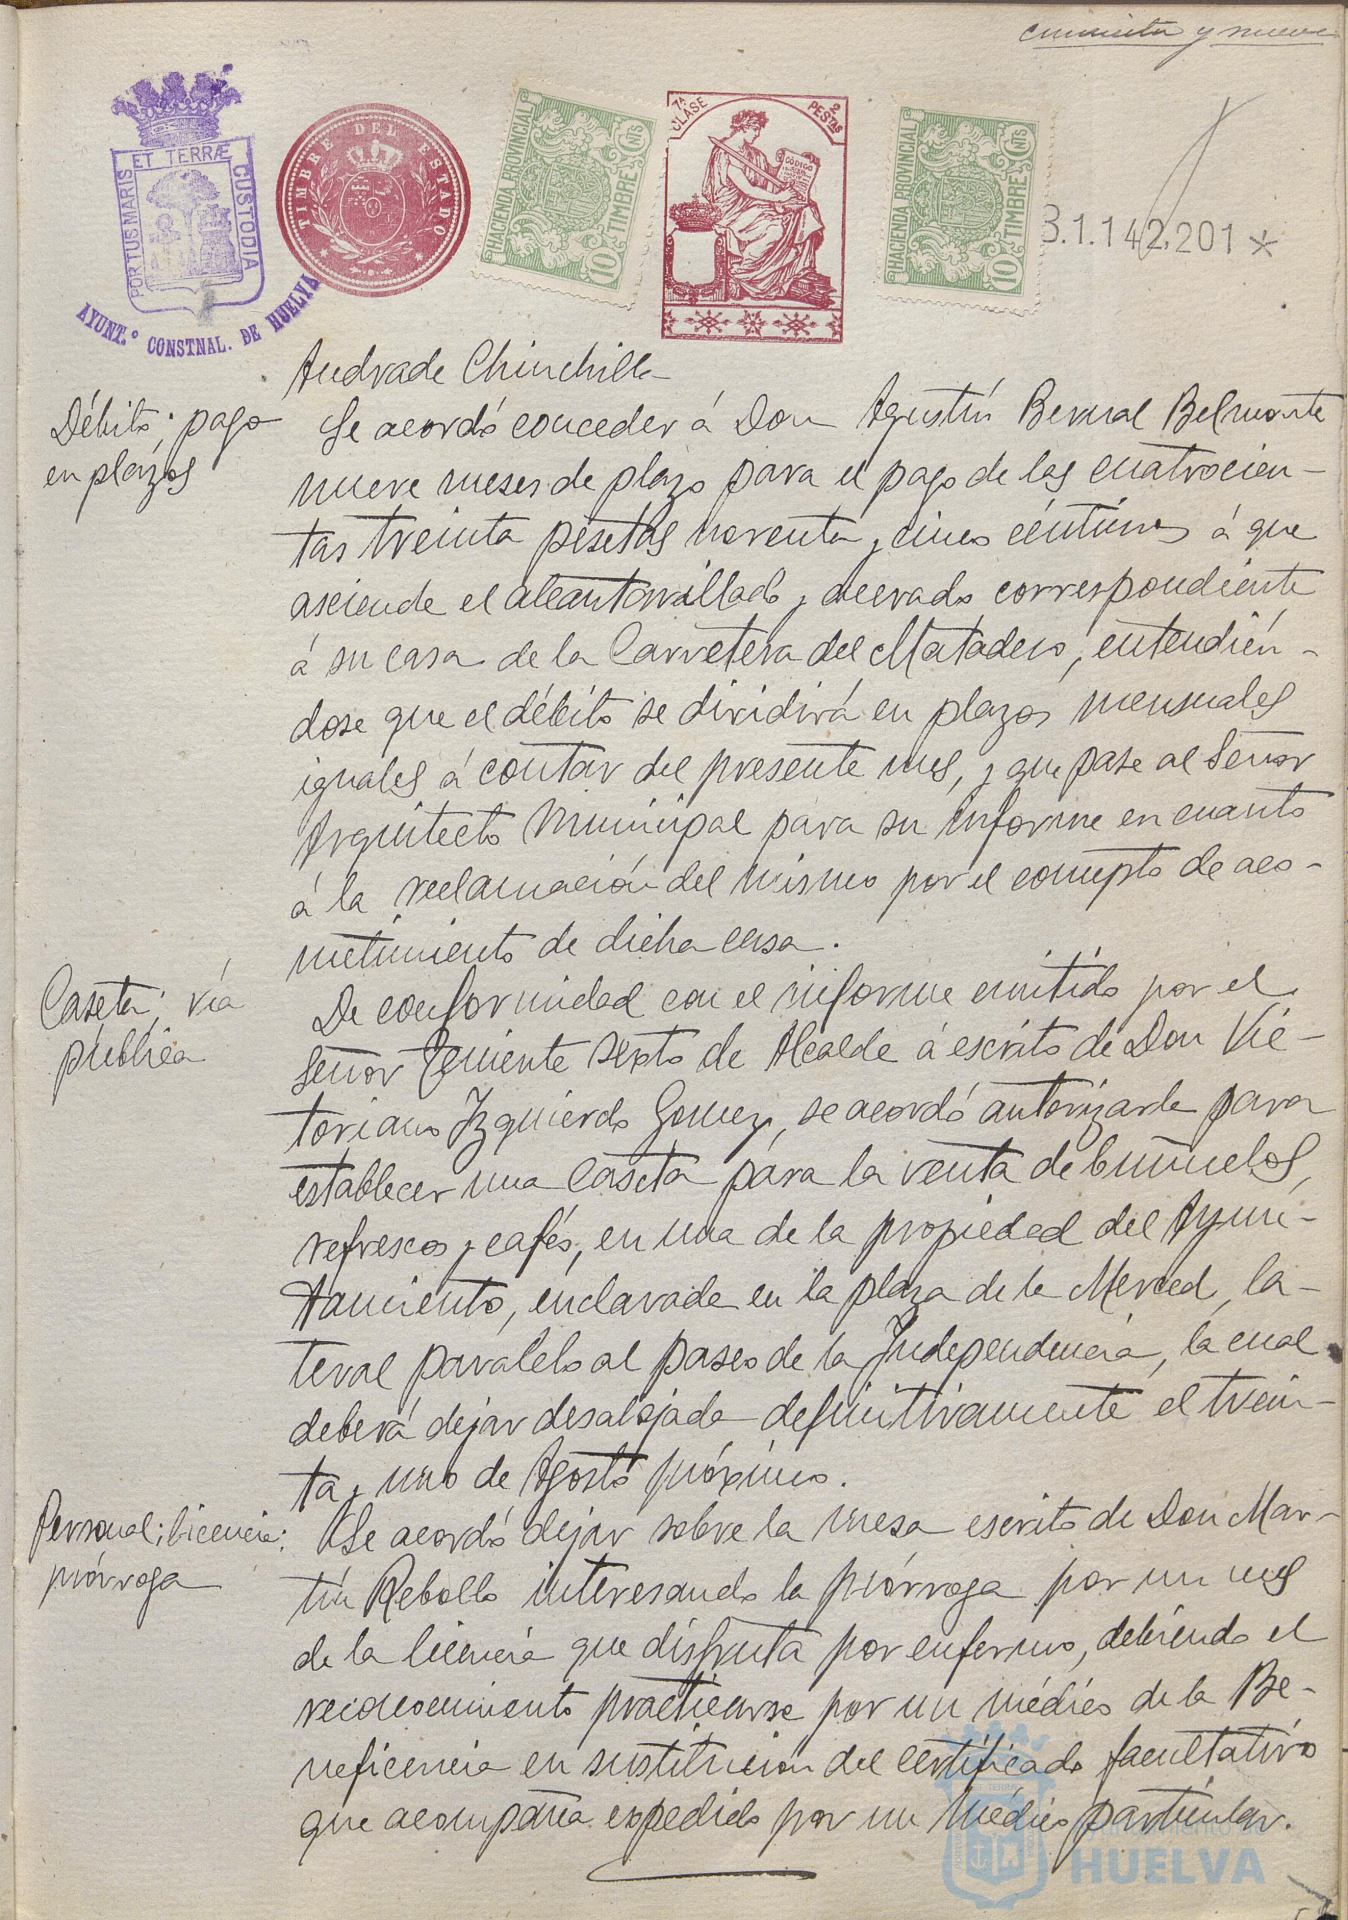 cincuenta y nueve
PORTUS MARIS ET TERRÆ CUSTODIA
AYUNT.º CONSTNAL. DE HUELVA
TIMBRE DEL ESTADO
HACIENDA PROVINCIAL
10 CNTS
TIMBRE
7ª CLASE
2 PESTAS
CÓDIGO
HACIENDA PROVINCIAL
10 CNTS
TIMBRE
B.1.142,201*
Andrade Chinchilla
Débito; pago
en plazos
Se acordó conceder á Don Agustín Bernal Belmonte
nueve meses de plazo para el pago de las cuatrocien-
tas treinta pesetas noventa y cinco céntimos á que
asciende el alcantarillado y acerado correspondiente
á su casa de la Carretera del Matadero, entendién-
dose que el débito se dividirá en plazos mensuales
iguales á contar del presente mes, y que pase al Señor
Arquitecto Municipal para su informe en cuanto
á la reclamación del mismo por el concepto de aco-
metimiento de dicha casa.
Caseta; vía
pública
De conformidad con el informe emitido por el
Señor Teniente sexto de Alcalde á escrito de Don Vic-
toriano Izquierdo Gomez, se acordó autorizarle para
establecer una caseta para la venta de buñuelos,
refrescos y cafés, en una de la propiedad del Ayun-
tamiento, enclavada en la plaza de la Merced, la-
teral paralelo al paseo de la Independencia, la cual
deberá dejar desalojada definitivamente el trein-
ta y uno de Agosto próximo.
Personal; licencia;
prórroga
Se acordó dejar sobre la mesa escrito de Don Mar-
tín Rebollo interesando la prórroga por un mes
de la licencia que disfruta por enfermo, debiendo el
reconocimiento practicarse por un médico de la Be-
neficencia en sustitución del certificado facultativo
que acompaña expedido por un médico particular.
HUELVA